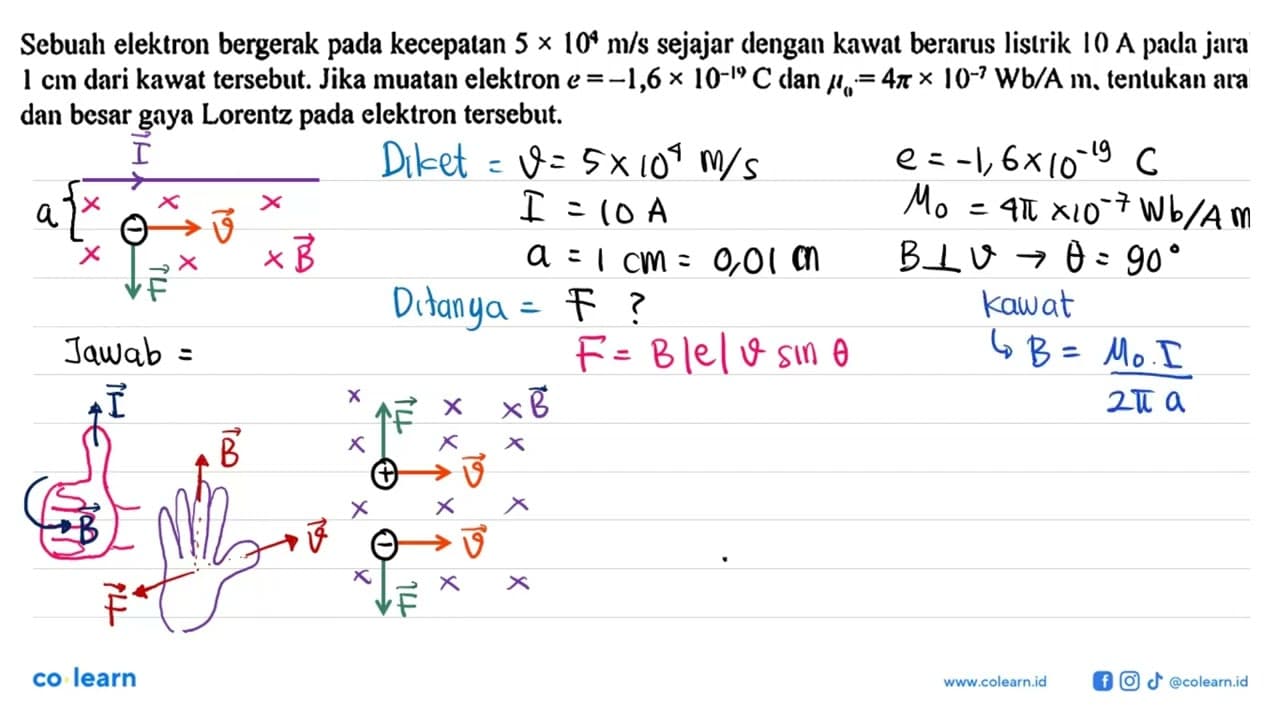 Sebuah elektron bergerak pada kecepatan 5 × 10⁴ m/s sejajar dengan kawat berarus listrik 10 A pada jara
1 cm dari kawat tersebut. Jika muatan elektron e = –1,6 × 10⁻¹⁹ C dan μ₀ = 4π × 10⁻⁷ Wb/A m, tentukan ara
dan besar gaya Lorentz pada elektron tersebut.
I
Diket = v = 5 × 10⁴ m/s
e = -1,6 × 10⁻¹⁹ C
a { x x x
− v
I = 10 A
M₀ = 4π × 10⁻⁷ Wb/A m
x x x B
F
a = 1 cm = 0,01 m
B ⊥ v → θ = 90°
Ditanya = F ?
kawat
Jawab =
F = B |e| v sin θ
↳ B = M₀ . I / 2π a
I
x F x x B
B
x x x
+ v
B
x x x
v
− v
F
x F x x
co learn
www.colearn.id
@colearn.id